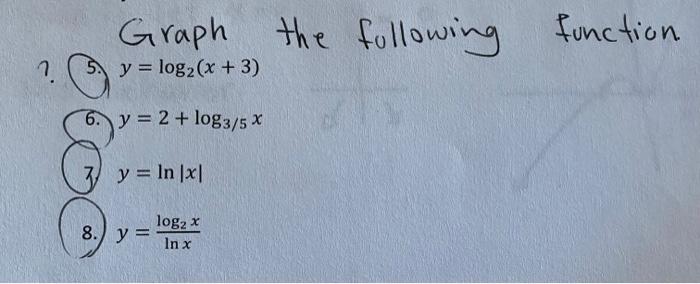 Graph the following function
? 5. y = log₂(x + 3)
6. y = 2 + log₃/₅ x
7. y = ln |x|
8. y = log₂ x / ln x